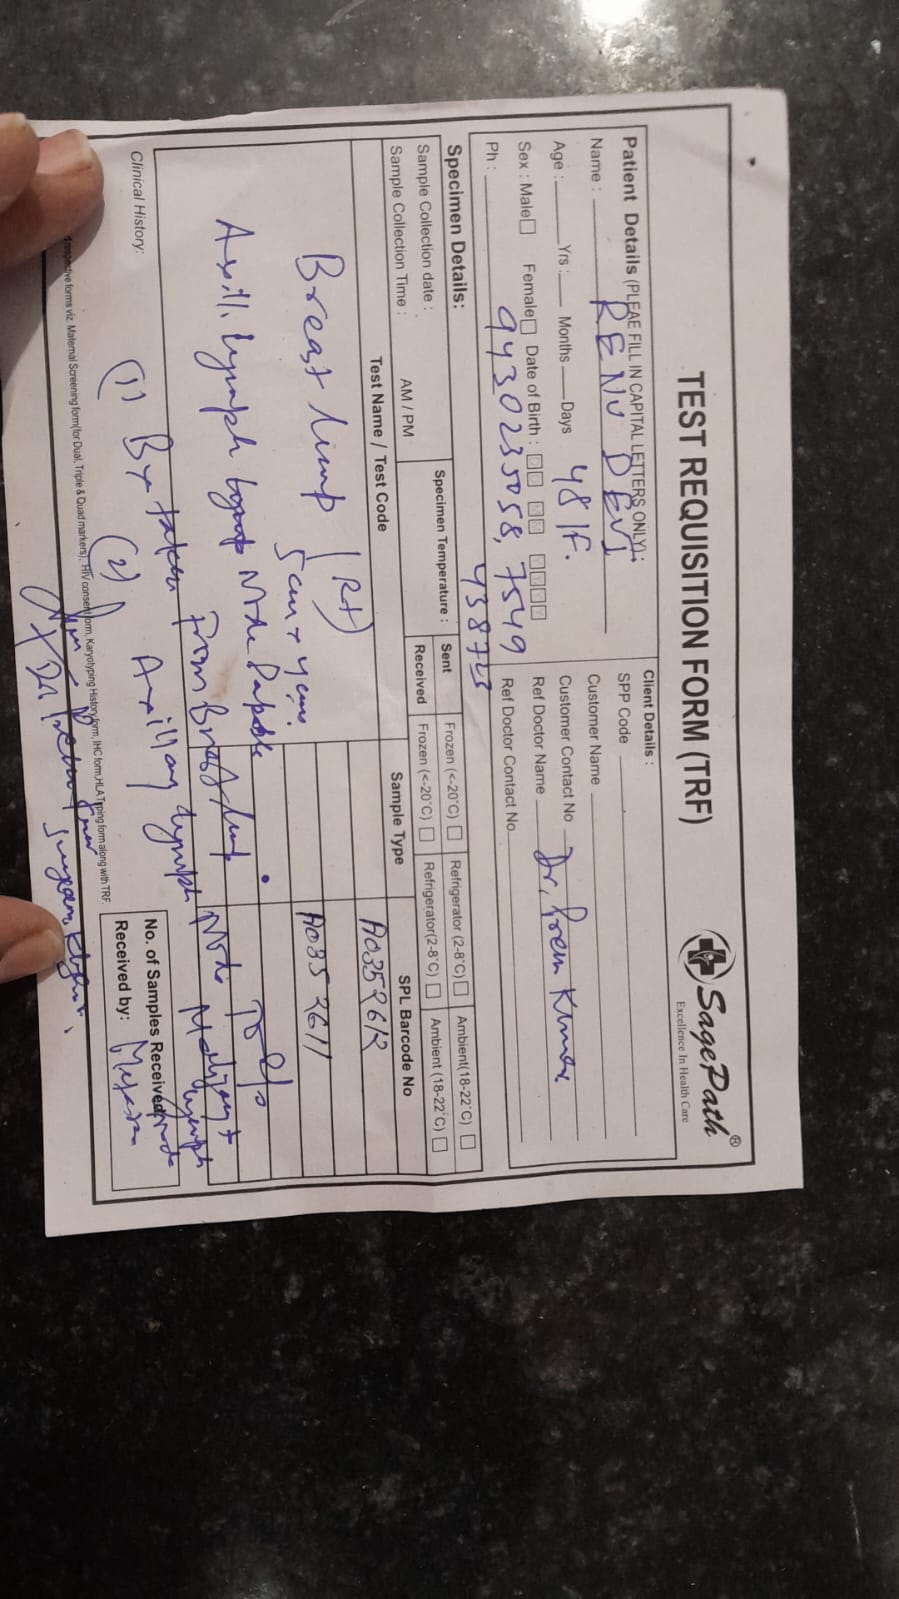 TEST REQUISITION FORM (TRF)
SagePath®
Excellence In Health Care
Patient Details (PLEAE FILL IN CAPITAL LETTERS ONLY):
Name : RENU DEVI
Age : Yrs : Months Days 48/F.
Sex : Male Female Date of Birth :
Ph : 9430235058, 7549
438725
Client Details :
SPP Code
Customer Name
Customer Contact No
Ref Doctor Name Dr. Prem Kumar
Ref Doctor Contact No.
Specimen Details:
Sample Collection date :
Sample Collection Time : AM / PM
Specimen Temperature :
Sent Frozen (<-20°C) Refrigerator (2-8°C) Ambient(18-22°C)
Received Frozen (<-20°C) Refrigerator(2-8°C) Ambient (18-22°C)
Test Name / Test Code Sample Type SPL Barcode No
Breast lump (Rt) A0352612
5cm + 4cm. A0352611
Axill. lymph Node Palpable
From Breast lump
Clinical History:
(1) Bx taken
(2) Axillary lymph Node
respective forms viz. Maternal Screening form(for Dual, Triple & Quad markers), HIV consent form, Karyotyping History form, IHC form,HLA Typing form along with TRF.
No. of Samples Received:
Received by: